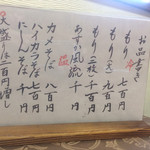 お品書き
冷
もり 七百円
もり(大) 九百円
もり(二枚) 千円
あすか風流 千円
温
カメそば 七百円
ハイカラそば 八百円
にしんそば 千円
大盛りは二百円増し